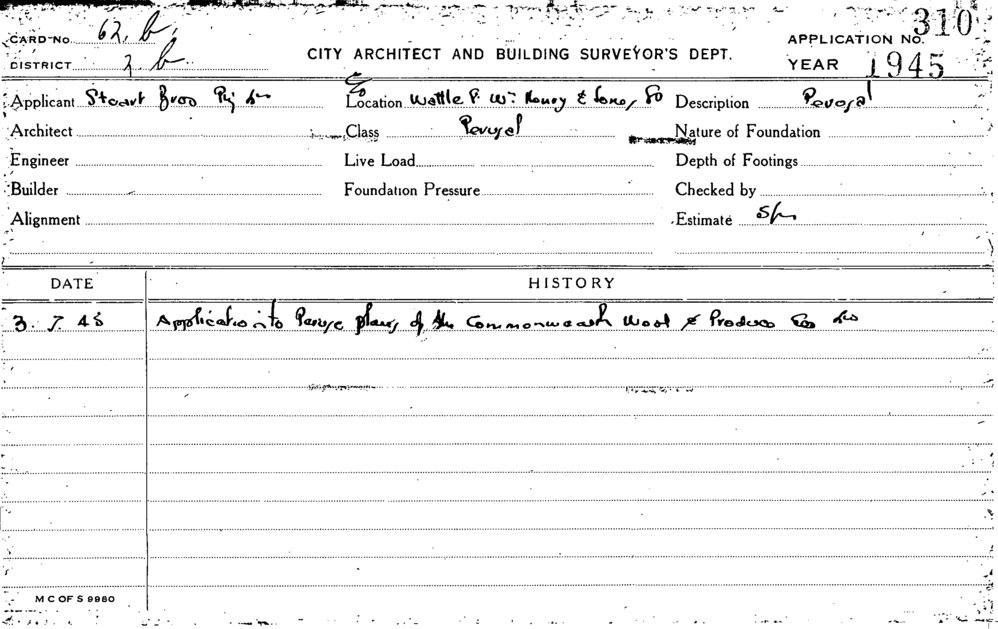 CARD No. 62. b.
APPLICATION No. 310
DISTRICT 2 b.
CITY ARCHITECT AND BUILDING SURVEYOR'S DEPT.
YEAR 1945
Applicant Stuart Bros Pty
Location Wattle Henry & Jones Sts
Description Perusal
Architect
Class Perusal
Nature of Foundation
Engineer
Live Load
Depth of Footings
Builder
Foundation Pressure
Checked by
Alignment
Estimate
DATE HISTORY
3. 7. 45 Application to Peruse plans of the Commonwealth Wool & Produce Co
M C OF S 9980